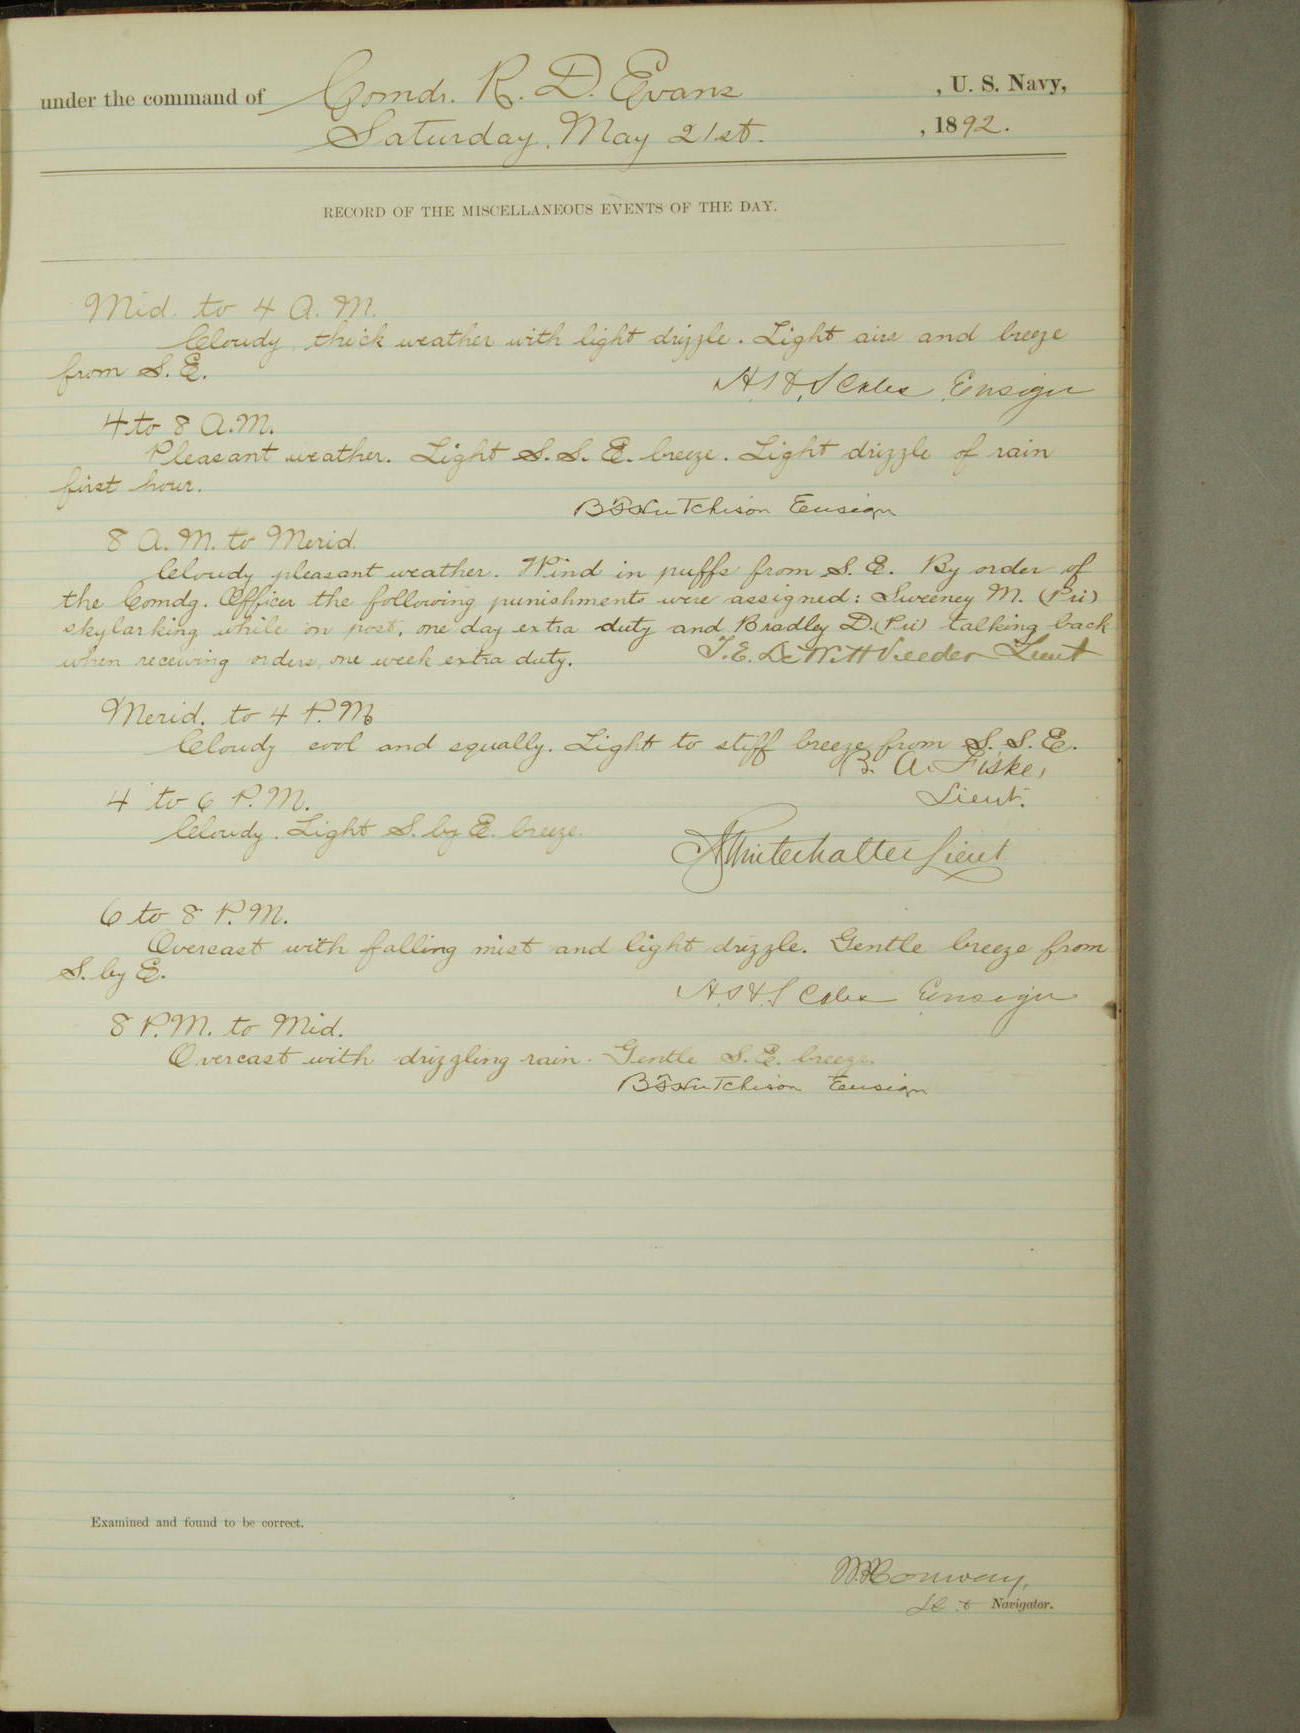 under the command of Comdr. R. D. Evans , U. S. Navy,
Saturday, May 21st. , 1892.
RECORD OF THE MISCELLANEOUS EVENTS OF THE DAY.
Mid. to 4 A. M.
Cloudy, thick weather with light drizzle. Light airs and breeze
from S. E.
A. H. Scales, Ensign
4 to 8 A.M.
Pleasant weather. Light S. S. E. breeze. Light drizzle of rain
first hour.
B. F. Hutchison Ensign
8 A. M. to Merid.
Cloudy pleasant weather. Wind in puffs from S. E. By order of
the Comdg. Officer the following punishments were assigned: Sweeney M. (Pri)
skylarking while on post, one day extra duty and Bradley D. (Pri) talking back
when receiving orders, one week extra duty. T. E. DeWitt Veeder Lieut
Merid. to 4 P. M.
Cloudy cool and squally. Light to stiff breeze from S. S. E.
B. A. Fiske,
Lieut.
4 to 6 P. M.
Cloudy. Light S. by E. breeze.
Winterhalter Lieut
6 to 8 P. M.
Overcast with falling mist and light drizzle. Gentle breeze from
S. by E.
A. H. Scales Ensign
8 P. M. to Mid.
Overcast with drizzling rain. Gentle S. E. breeze.
B. F. Hutchison Ensign
Examined and found to be correct.
Conway,
Navigator.